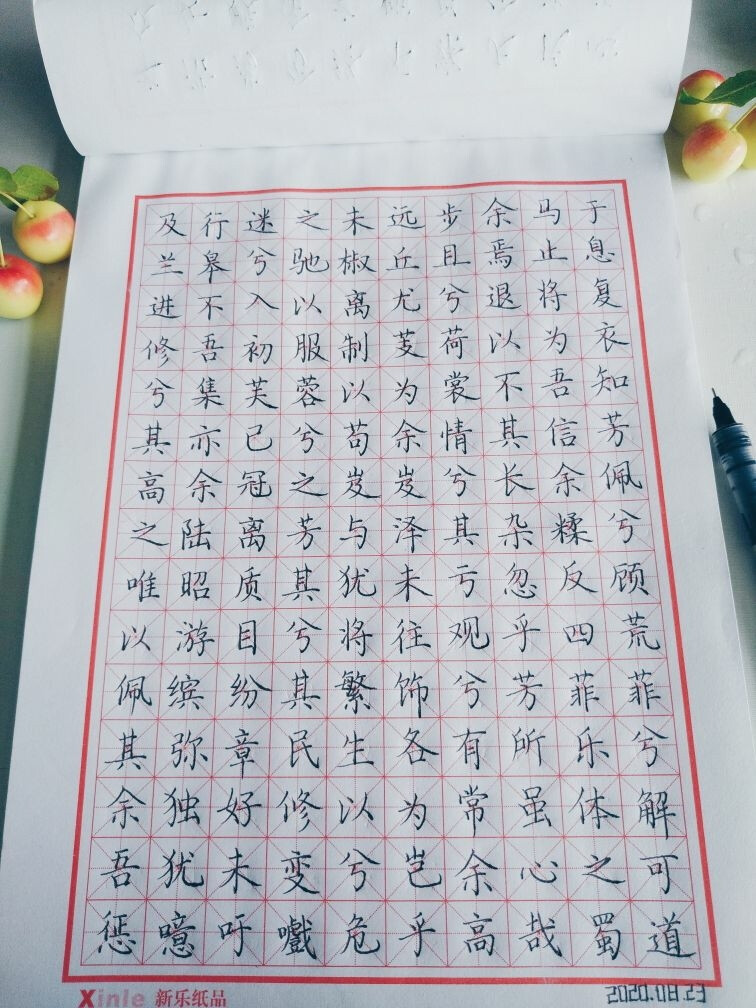 及行迷之未远步余马于
兰皋兮驰椒丘且焉止息
进不入以离尤兮退将复
修吾初服制芰荷以为衣
兮集芙蓉以为裳不吾知
其亦已兮苟余情其信芳
高余冠之岌岌兮长余佩
之陆离芳与泽其杂糅兮
唯昭质其犹未亏忽反顾
以游目兮将往观乎四荒
佩缤纷其繁饰兮芳菲菲
其弥章民生各有所乐兮
余独好修以为常虽体解
吾犹未变兮岂余心之可
惩噫吁嚱危乎高哉蜀道
Xinle 新乐纸品
2020.08.23